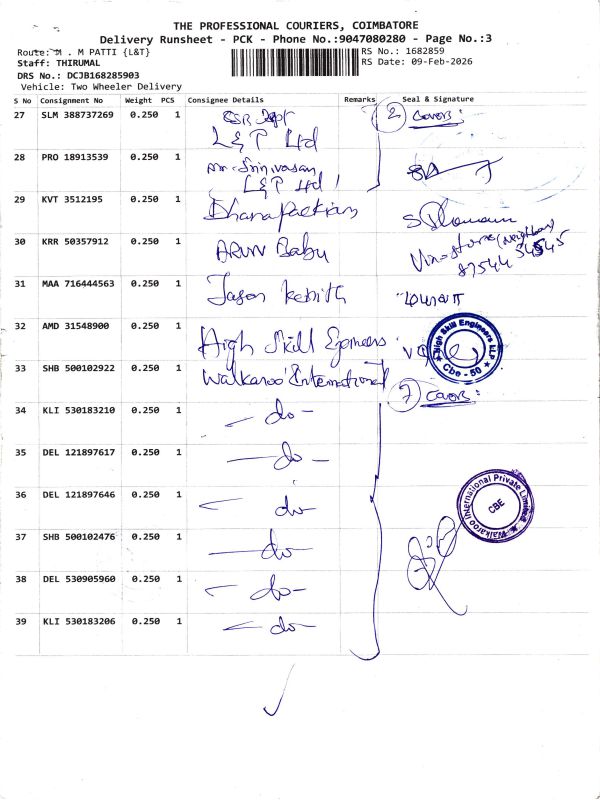 THE PROFESSIONAL COURIERS, COIMBATORE
Delivery Runsheet - PCK - Phone No.:9047080280 - Page No.:3
Route: M . M PATTI {L&T}
RS No.: 1682859
Staff: THIRUMAL
RS Date: 09-Feb-2026
DRS No.: DCJB168285903
Vehicle: Two Wheeler Delivery
S No Consignment No Weight PCS Consignee Details Remarks Seal & Signature
27 SLM 388737269 0.250 1 CSR Dept 2 Covers:
L&T Ltd
28 PRO 18913539 0.250 1 Mr. Srinivasan
L&T Ltd
29 KVT 3512195 0.250 1
30 KRR 50357912 0.250 1 ARUN Babu (Neighbour)
87544 54545
31 MAA 716444563 0.250 1 Jason
32 AMD 31548900 0.250 1 High Skill Engineers
High Skill Engineers LLP
Cbe - 50
33 SHB 500102922 0.250 1 Walkaroo International 7 Covers:
34 KLI 530183210 0.250 1 - do -
35 DEL 121897617 0.250 1 - do -
36 DEL 121897646 0.250 1 - do -
Walkaroo International Private Limited
CBE
37 SHB 500102476 0.250 1 - do -
38 DEL 530905960 0.250 1 - do -
39 KLI 530183206 0.250 1 - do -